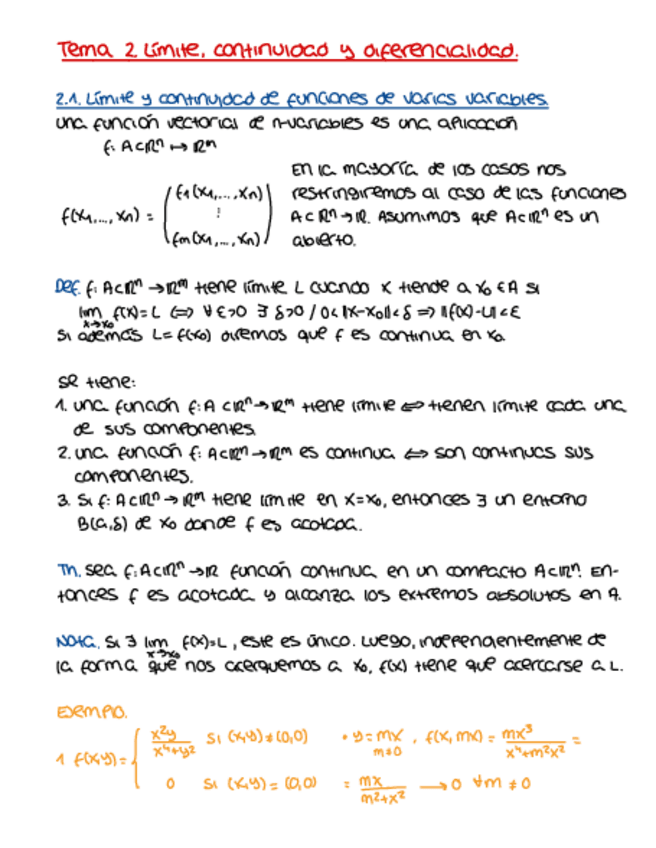 Tema 2. Límite, continuidad y diferencialidad.
2.1. Límite y continuidad de funciones de varias variables.
Una función vectorial de n-variables es una aplicación
f: A⊂ℝⁿ ↦ ℝᵐ
En la mayoría de los casos nos
f(x₁,...,xₙ) = ( f₁(x₁,...,xₙ) ⋮ fₘ(x₁,...,xₙ) ) restringiremos al caso de las funciones
A⊂ℝⁿ→ℝ. Asumimos que A⊂ℝⁿ es un
abierto.
Def. f: A⊂ℝⁿ → ℝᵐ tiene límite L cuando x tiende a x₀ ∈ A si
lim x→x₀ f(x)=L ⟺ ∀ε>0 ∃ δ>0 / 0<‖x-x₀‖<δ ⟹ ‖f(x)-L‖<ε
Si además L=f(x₀) diremos que f es continua en x₀.
Se tiene:
1. una función f: A⊂ℝⁿ→ℝᵐ tiene límite ⟺ tienen límite cada una
de sus componentes.
2. una función f: A⊂ℝⁿ→ℝᵐ es continua ⟺ son continuas sus
componentes.
3. Si f: A⊂ℝⁿ→ℝᵐ tiene límite en x=x₀, entonces ∃ un entorno
B(a,δ) de x₀ donde f es acotada.
Th. sea f: A⊂ℝⁿ→ℝ función continua en un compacto A⊂ℝⁿ. En-
tonces f es acotada y alcanza los extremos absolutos en A.
Nota. Si ∃ lim x→x₀ f(x)=L, este es único. Luego, independientemente de
la forma que nos acerquemos a x₀, f(x) tiene que acercarse a L.
Ejemplo.
1 f(x,y) = { x²y / x⁴+y² si (x,y)≠(0,0) • y=mx, m≠0 f(x,mx) = mx³ / x⁴+m²x² =
0 si (x,y)=(0,0) = mx / m²+x² → 0 ∀m≠0